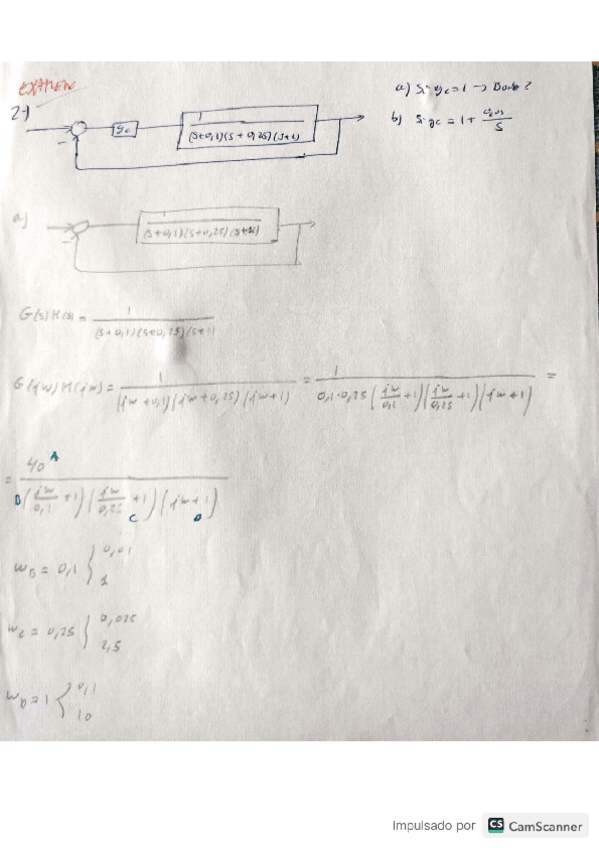 EXAMEN
a) Si gc=1 → Bode?
2-)
gc
1
(s+0,1)(s+0,25)(s+1)
b) Si gc = 1 + /s
a)
1
(s+0,1)(s+0,25)(s+1)
G(s)H(s) = 1/(s+0,1)(s+0,25)(s+1)
G(jw)H(jw) = 1/(jw+0,1)(jw+0,25)(jw+1) = 1/0,1·0,25(jw/0,1+1)(jw/0,25+1)(jw+1) =
= 40 A/B(jw/0,1+1)(jw/0,25+1)C(jw+1)D
wB = 0,1 { 0,01
1
wC = 0,25 { 0,025
2,5
wD = 1 { 0,1
10
Impulsado por CS CamScanner